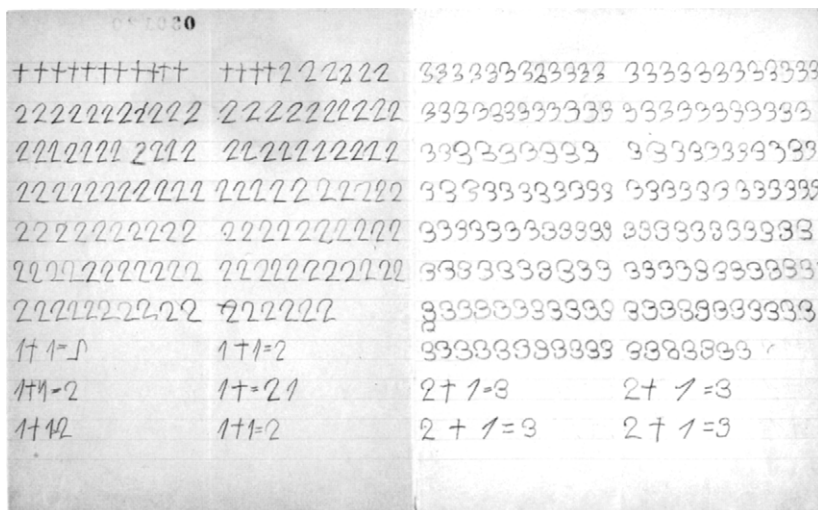 +++++++++++ ++++222222
22222222222 2222222222
2222222 2222 2222222222
22222222222 22222222222
2222222222 2222222222
22222222222 22222222222
2222222222 222222
1+1= 1+1=2
1+1=2 1+=21
1+12 1+1=2
33333333333 333333333333
333333333333 33333333333
3333333333 33333333333
333333333333 333333333333
333333333333 33333333333
33333333333 333333333333
333333333333 333333333333
333333333333 33333333
2+1=3 2+1=3
2+1=3 2+1=3